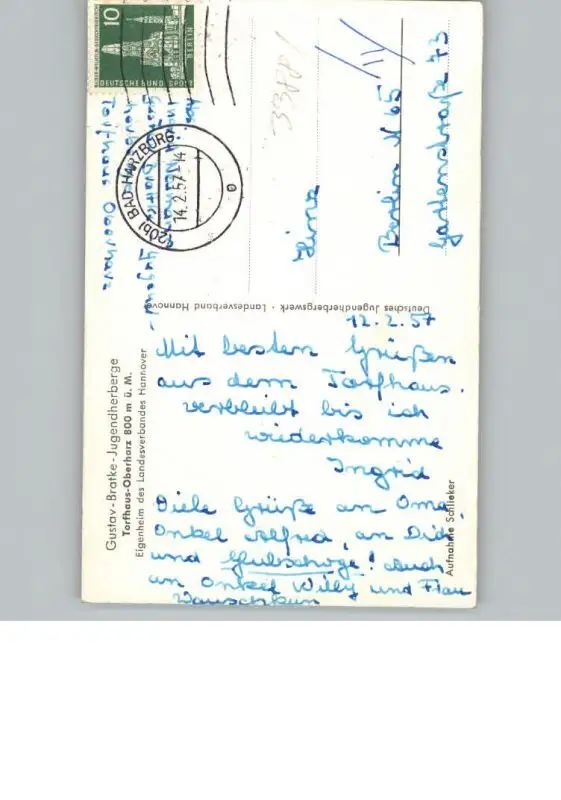 10
DEUTSCHE BUNDESPOST
BERLIN
(20b) BAD HARZBURG
14.2.57-14
Torfhaus Oberharz
33881
Hinz
Berlin N 65
Gartenstraße 73
Deutsches Jugendherbergswerk · Landesverband Hannover
Gustav-Bratke-Jugendherberge
Torfhaus-Oberharz 800 m ü. M.
Eigenheim des Landesverbandes Hannover
12.2.57
Mit besten Grüßen
aus dem Torfhaus.
verbleibt bis ich
wiederkomme
Ingrid
Viele Grüße an Oma,
Onkel Alfred, an Dich
und ! Auch
an Onkel Willy und Frau
Aufnahme Schlieker